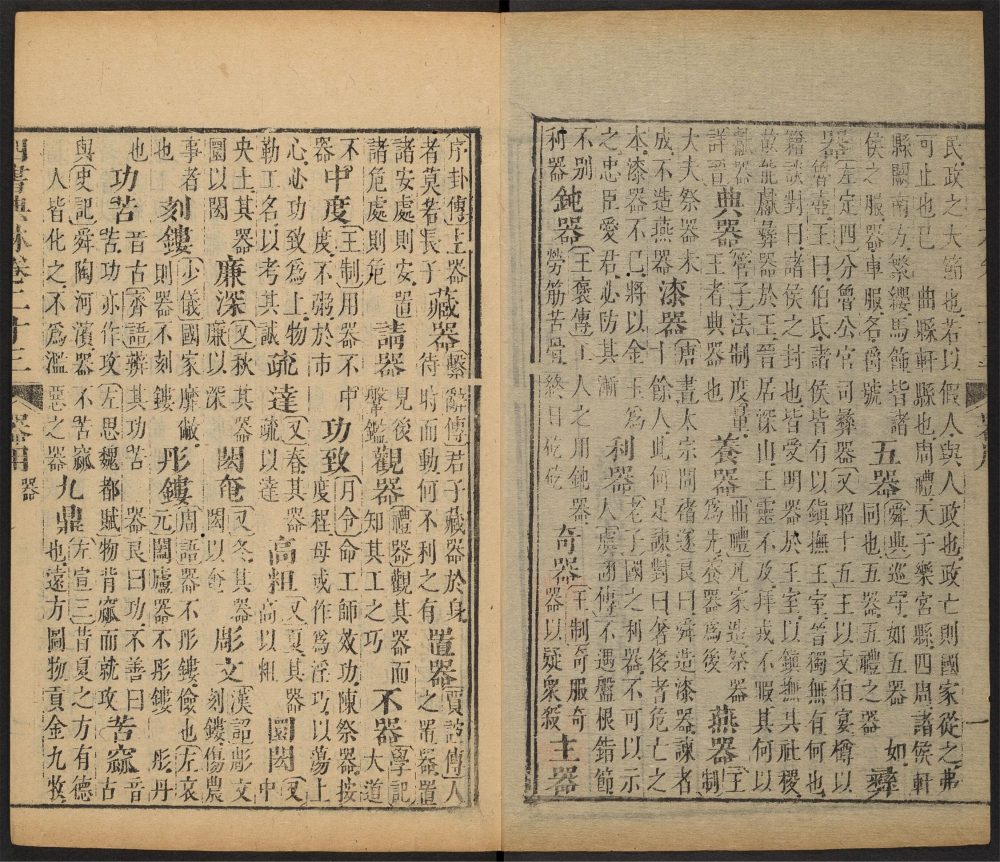 民政之大節也若以假人與人政也政亡則國家從之弗
可止也已 曲縣軒縣也周禮天子樂宮縣四周諸侯軒
縣闕南方繁纓馬飾皆諸
侯之服器車服名爵號
五器
舜典巡守如五器 如
同也五器五禮之器
彝
器
左定四分魯公官司彝器又昭十五王以文伯宴樽以
魯壺王曰伯氏諸侯皆有以鎮撫王室晉獨無有何也
籍談對曰諸侯之封也皆受明器於王室以鎮撫其社稷
故能獻彝器於王晉居深山王靈不及拜戎不暇其何以
獻器
詳晉
典器
管子法制度量
王者典器也
養器
曲禮凡家造祭器
為先養器為後
燕器
王
制
大夫祭器未
成不造燕器
漆器
唐書太宗問褚遂良曰舜造漆器諫者
十餘人此何足諫對曰奢侈者危亡之
本漆器不已將以金玉為
之忠臣愛君必防其漸
利器
老子國之利器不可以示
人虞詡傳不遇盤根錯節
不別
利器
鈍器
王褒傳工人之用鈍器
勞筋苦骨終日矻矻
奇器
王制奇服奇
器以疑衆殺
主器
序卦傳主器
者莫若長子
藏器
繫辭傳君子藏器於身
待時而動何不利之有
置器
賈誼傳人
之置器置
諸安處則安置
諸危處則危
請器
見後
鞶鑑
觀器
禮器觀其器而
知其工之巧
不器
學記
大道
不
器
中度
王制用器不中
度不粥於市
功致
月令命工師效功陳祭器按
度程毋或作為淫巧以蕩上
心必功致為上物
勒工名以考其誠
疏達
又春其器
疏以達
高粗
又夏其器
高以粗
圜閎
又
中
央土其器
圜以閎
廉深
又秋其器
廉以深
閎奄
又冬其器
閎以奄
彫文
漢詔彫文
刻鏤傷農
事者
也
刻鏤
少儀國家靡敝
則器不刻鏤
彤鏤
周語器不彤鏤儉也左哀
元闔廬器不彤鏤 彤丹
也
功苦
音古齊語辨其功苦 器良曰功不善曰
苦功亦作攻左思魏都賦物背窳而就攻
苦窳
音
古
與史記舜陶河濱器不苦窳
人皆化之不為濫惡之器
九鼎
左宣三昔夏之方有德
也遠方圖物貢金九牧
四書典林卷二十三 器用 器